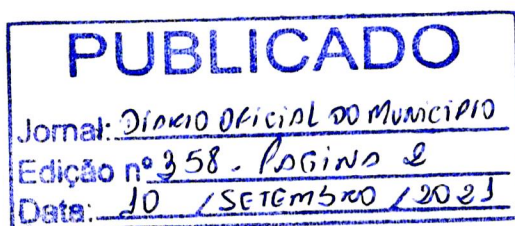 PUBLICADO
Jornal: DIÁRIO OFICIAL DO MUNICIPIO
Edição nº 358 - PAGINA 2
Data: 10 / SETEMBRO / 2021